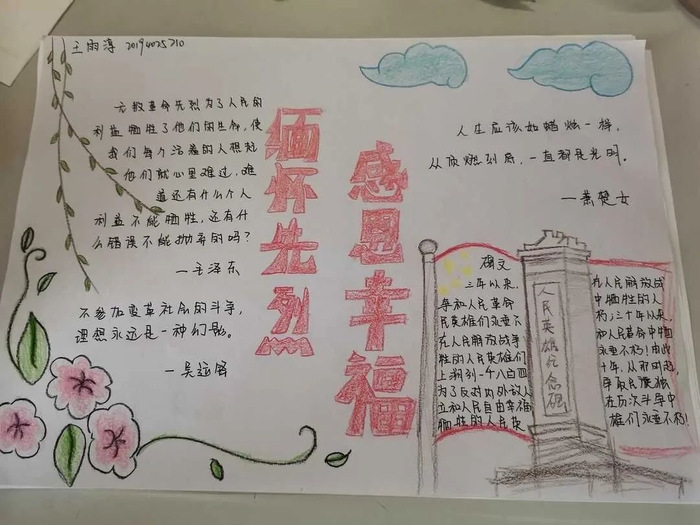 王雨淳 20194025210
无数革命先烈为了人民的
利益牺牲了他们的生命,使
我们每个活着的人想起
他们就心里难过,难
道还有什么个人
利益不能牺牲,还有什
么错误不能抛弃的吗?
—毛泽东
不参加变革社会的斗争,
理想永远是一种幻影。
—吴运铎
缅怀先烈
感恩幸福
人生应该如蜡烛一样,
从顶燃到底,一直都是光明。
—萧楚女
碑文
三年以来,
争和人民革命
民英雄们永垂不
在人民解放战争
牲的人民英雄们
上溯到一千八百四
为了反对内外敌人
立和人民自由幸福
牺牲的人民英
人民英雄纪念碑
在人民解放战
中牺牲的人
朽!三十年以来,
和人民革命中牺
永垂不朽!由此
十年,从那时起,
争取民族独
在历次斗争中
雄们永垂不朽!